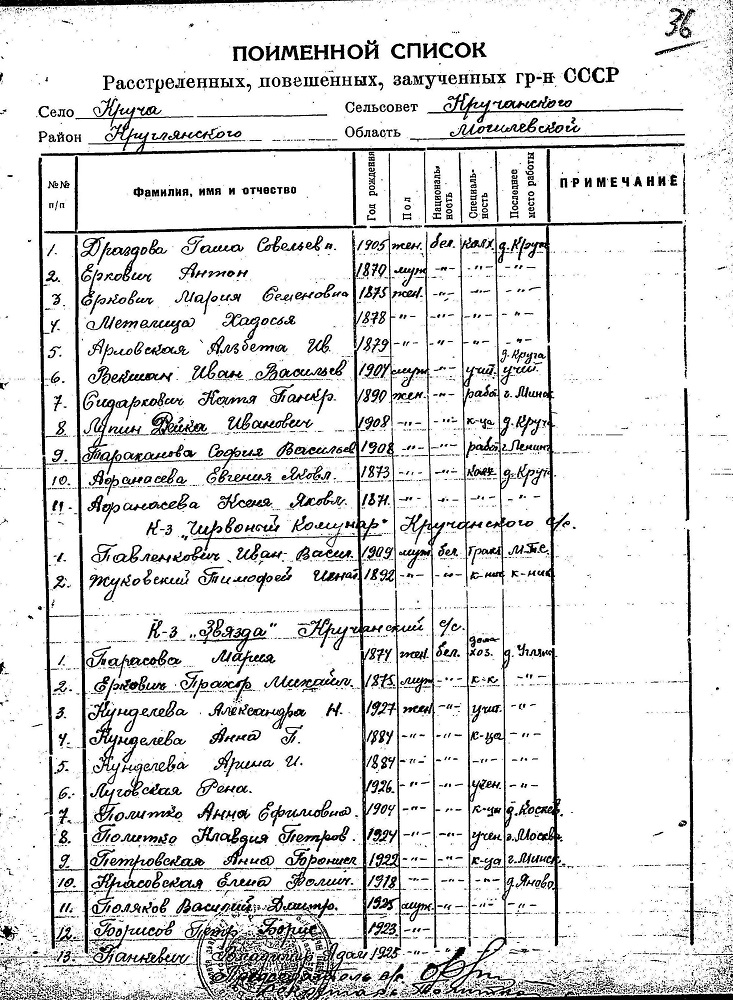 36
ПОИМЕННОЙ СПИСОК
Расстрелянных, повешенных, замученных гр-н СССР
Село Круча Сельсовет Кручанского
Район Круглянского Область Могилевской
№№ п/п Фамилия, имя и отчество Год рождения Пол Националь-ность Специаль-ность Последнее место работы ПРИМЕЧАНИЕ
1. Драздова Гаша Совельевн. 1905 жен. бел. колх. д. Круч
2. Еркович Антон 1870 муж -"- -"- -"-
3. Еркович Мария Семеновна 1875 жен. -"- -"- -"-
4. Метелица Хадосья 1878 -"- -"- -"- -"-
5. Арловская Альбета Ив. 1879 -"- -"- -"- -"-
6. Векшан Иван Васильев 1907 муж -"- учит. д. Круча учит.
7. Сидаркович Катя Панкр. 1890 жен. -"- работ г. Минск
8. Лупин Иванович 1908 -"- -"- к-ца д. Круча
9. Тараканова София Васильев 1908 -"- -"- работ г. Ленинг
10. Афанасева Евгения Яковл. 1873 -"- -"- колх д. Круча
11. Афанасева Ксеня Яковл. 1871. -"- -"- -"- -"-
К-з "Чирвоный Комунар" Кручанского с/с.
1. Павленкович Иван Васил. 1909 муж бел. Тракт М.Т.С.
2. Жуковский Тимофей Игнат 1892 -"- -"- к-ник к-ник
К-з "Звязда" Кручанский с/с.
1. Тарасова Мария 1874 жен. бел. дома хоз. д. Угляны
2. Еркович Прахор Михайл. 1875. муж -"- к-к -"-
3. Кунделева Александра Н. 1927 жен -"- учит. -"-
4. Кунделева Анна П. 1884 -"- -"- к-ца -"-
5. Кунделева Арина И. 1884 -"- -"- -"- -"-
6. Луговская Рена. 1926. -"- -"- учен. -"-
7. Политко Анна Ефимовна. 1904 -"- -"- к-цы
8. Политко Клавдия Петров. 1924 -"- -"- учен г. Москва
9. Петровская Анна 1922 -"- -"- к-ца г. Минск.
10. Красовская Елена 1918 -"- -"- -"- д. Яново.
11. Поляков Василий Дмитр. 1925 муж -"- -"- -"-
12. Борисов Петр Борис 1923 -"-
13. Панкевич Владимир Адам 1925 -"-
Председатель с/с
Секретарь Политко